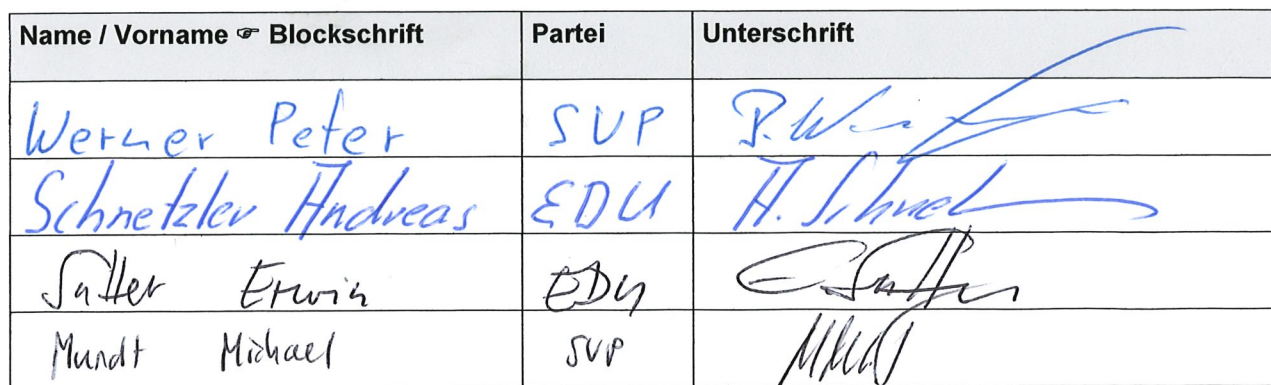 Name / Vorname ☞ Blockschrift Partei Unterschrift
Werner Peter SVP P. We
Schnetzler Andreas EDU A. Schnetz
Sutter Erwin EDU E. Sutter
Mundt Michael SVP